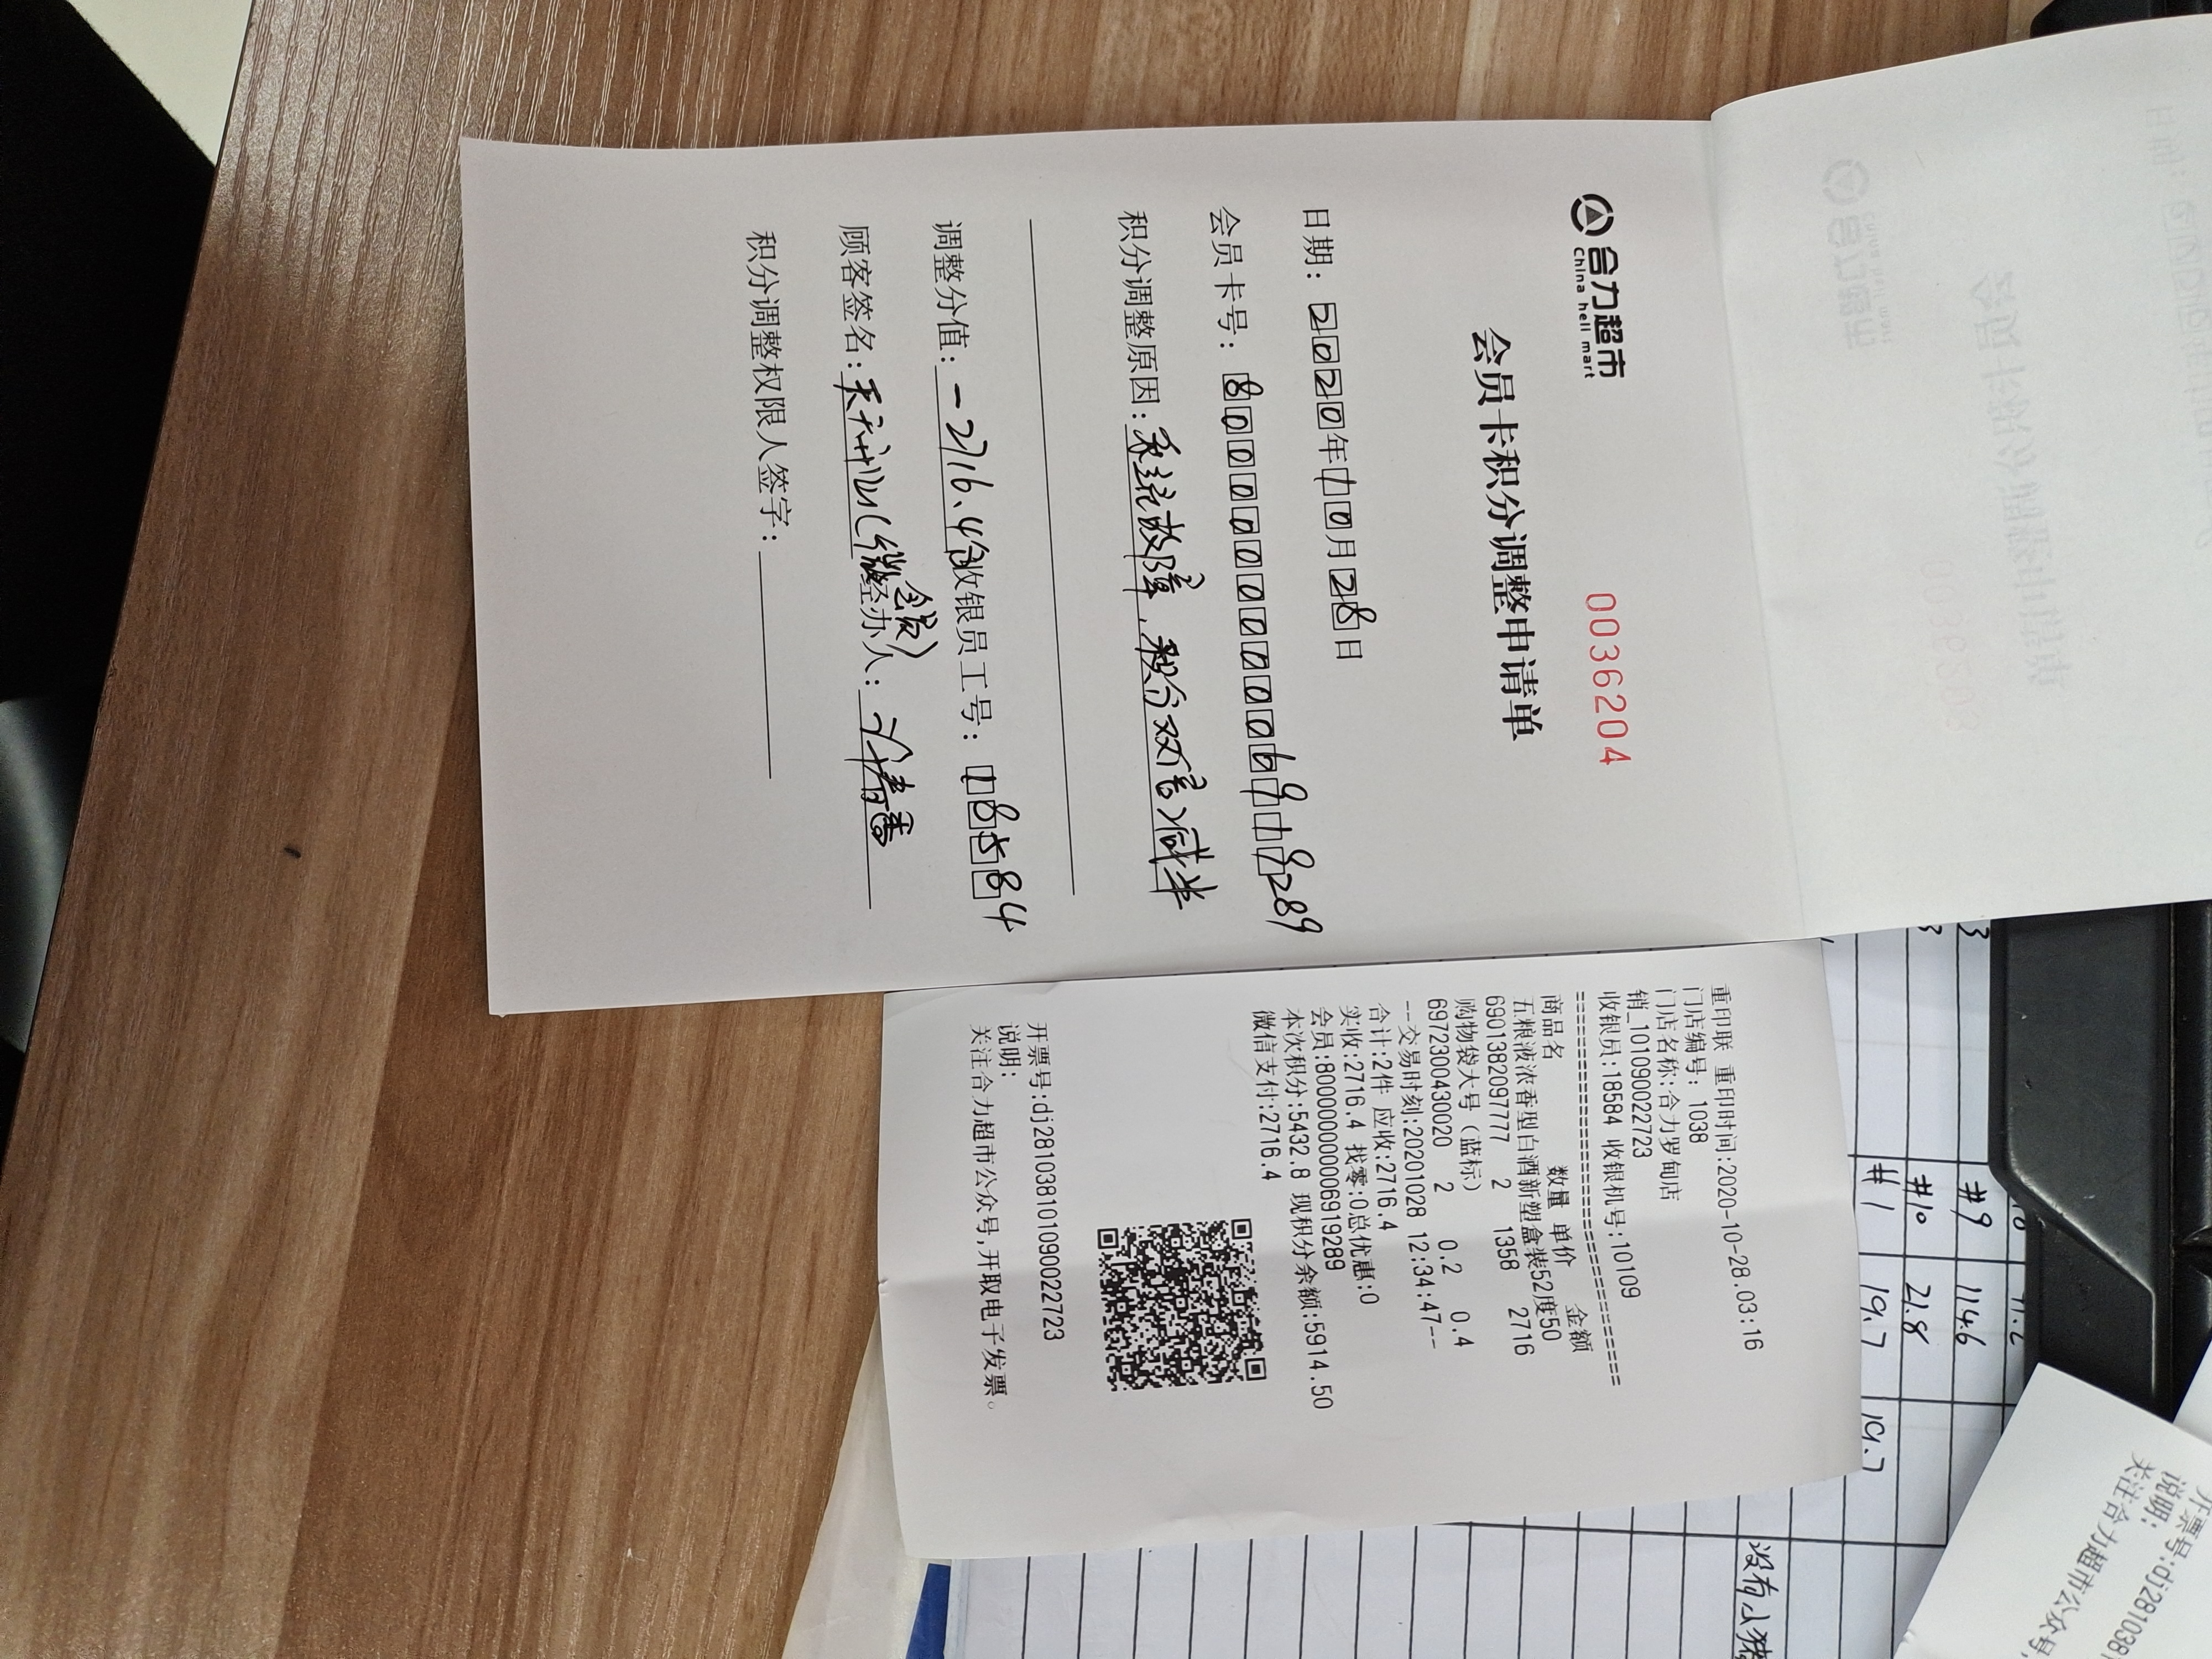 合力超市
China heli mart
0036204
会员卡积分调整申请单
日期：2020年10月28日
会员卡号：800000000006919289
积分调整原因：系统故障，积分双倍减半
调整分值：-2716.4分 收银员工号：18584
顾客签名： (微会员) 经办人：
积分调整权限人签字：
重印联 重印时间:2020-10-28.03:16
门店编号: 1038
门店名称:合力罗甸店
销_101090022723
收银员:18584 收银机号:10109
==============================
商品名 数量 单价 金额
五粮液浓香型白酒新塑盒装52度50
6901382097777 2 1358 2716
购物袋大号（蓝标）
6972300430020 2 0.2 0.4
--交易时刻:20201028 12:34:47--
合计:2件 应收:2716.4
实收:2716.4 找零:0总优惠:0
会员:800000000006919289
本次积分:5432.8 现积分余额:5914.50
微信支付:2716.4
开票号:dj281038101090022723
说明:
关注合力超市公众号,开取电子发票。
#9 114.6
#10 21.8
#1 19.7 19.7
没有小猪
开票号:dj2810381
说明:
关注合力超市公众号,